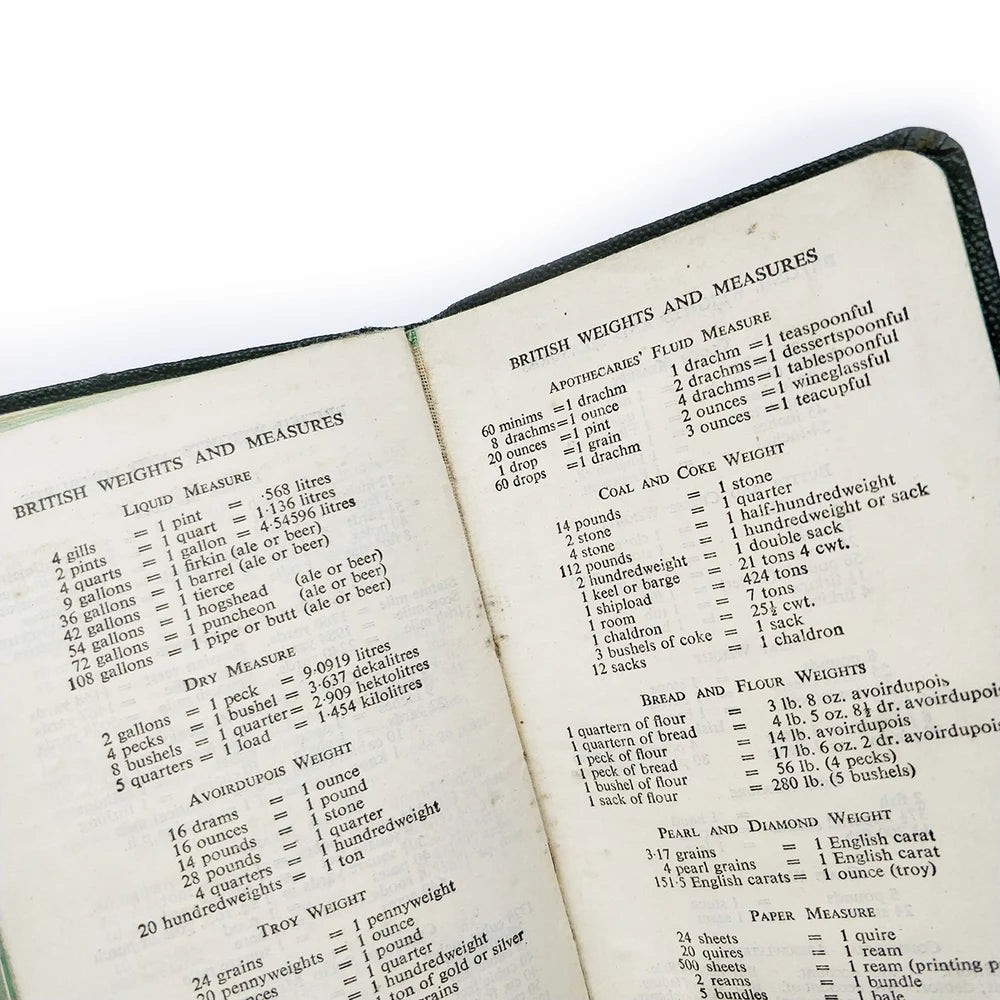 BRITISH WEIGHTS AND MEASURES
LIQUID MEASURE
4 gills = 1 pint = ·568 litres
2 pints = 1 quart = 1·136 litres
4 quarts = 1 gallon = 4·54596 litres
9 gallons = 1 firkin (ale or beer)
36 gallons = 1 barrel (ale or beer)
42 gallons = 1 tierce
54 gallons = 1 hogshead (ale or beer)
72 gallons = 1 puncheon (ale or beer)
108 gallons = 1 pipe or butt (ale or beer)
DRY MEASURE
2 gallons = 1 peck = 9·0919 litres
4 pecks = 1 bushel = 3·637 dekalitres
8 bushels = 1 quarter= 2·909 hektolitres
5 quarters = 1 load = 1·454 kilolitres
AVOIRDUPOIS WEIGHT
16 drams = 1 ounce
16 ounces = 1 pound
14 pounds = 1 stone
28 pounds = 1 quarter
4 quarters = 1 hundredweight
20 hundredweights = 1 ton
TROY WEIGHT
24 grains = 1 pennyweight
20 pennyweights = 1 ounce
= 1 pound
= 1 quarter
= 1 hundredweight
ton of gold or silver
grains
BRITISH WEIGHTS AND MEASURES
APOTHECARIES' FLUID MEASURE
60 minims =1 drachm 1 drachm =1 teaspoonful
8 drachms=1 ounce 2 drachms=1 dessertspoonful
20 ounces =1 pint 4 drachms=1 tablespoonful
1 drop =1 grain 2 ounces =1 wineglassful
60 drops =1 drachm 3 ounces =1 teacupful
COAL AND COKE WEIGHT
14 pounds = 1 stone
2 stone = 1 quarter
4 stone = 1 half-hundredweight
112 pounds = 1 hundredweight or sack
2 hundredweight = 1 double sack
1 keel or barge = 21 tons 4 cwt.
1 shipload = 424 tons
1 room = 7 tons
1 chaldron = 25½ cwt.
3 bushels of coke = 1 sack
12 sacks = 1 chaldron
BREAD AND FLOUR WEIGHTS
1 quartern of flour = 3 lb. 8 oz. avoirdupois
1 quartern of bread = 4 lb. 5 oz. 8½ dr. avoirdupois
1 peck of flour = 14 lb. avoirdupois
1 peck of bread = 17 lb. 6 oz. 2 dr. avoirdupois
1 bushel of flour = 56 lb. (4 pecks)
1 sack of flour = 280 lb. (5 bushels)
PEARL AND DIAMOND WEIGHT
3·17 grains = 1 English carat
4 pearl grains = 1 English carat
151·5 English carats= 1 ounce (troy)
PAPER MEASURE
24 sheets = 1 quire
20 quires = 1 ream
500 sheets = 1 ream (printing
2 reams = 1 bundle
5 bundles = 1 bale